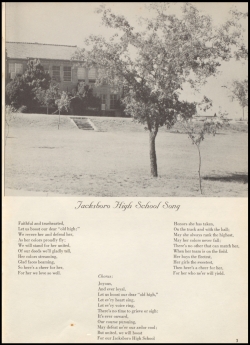 Jacksboro High School Song
Faithful and truehearted,
Let us boost our dear "old high;"
We revere her and defend her,
As her colors proudly fly;
We will stand for her united,
Of our deeds we'll gladly tell,
Her colors streaming,
Glad faces beaming,
So here's a cheer for her,
For her we love so well.
Honors she has taken,
On the track and with the ball;
May she always rank the highest,
May her colors never fall;
There's no other that can match her,
When her team is on the field.
Her boys the fleetest,
Her girls the sweetest,
Then here's a cheer for her,
For her who ne'er will yield.
Chorus:
Joyous,
And ever loyal,
Let us boost our dear "old high,"
Let ev'ry heart sing,
Let ev'ry voice ring,
There's no time to grieve or sigh;
It's ever onward,
Our course pursuing,
May defeat ne'er our ardor cool;
But united, we will boost
For our Jacksboro High School